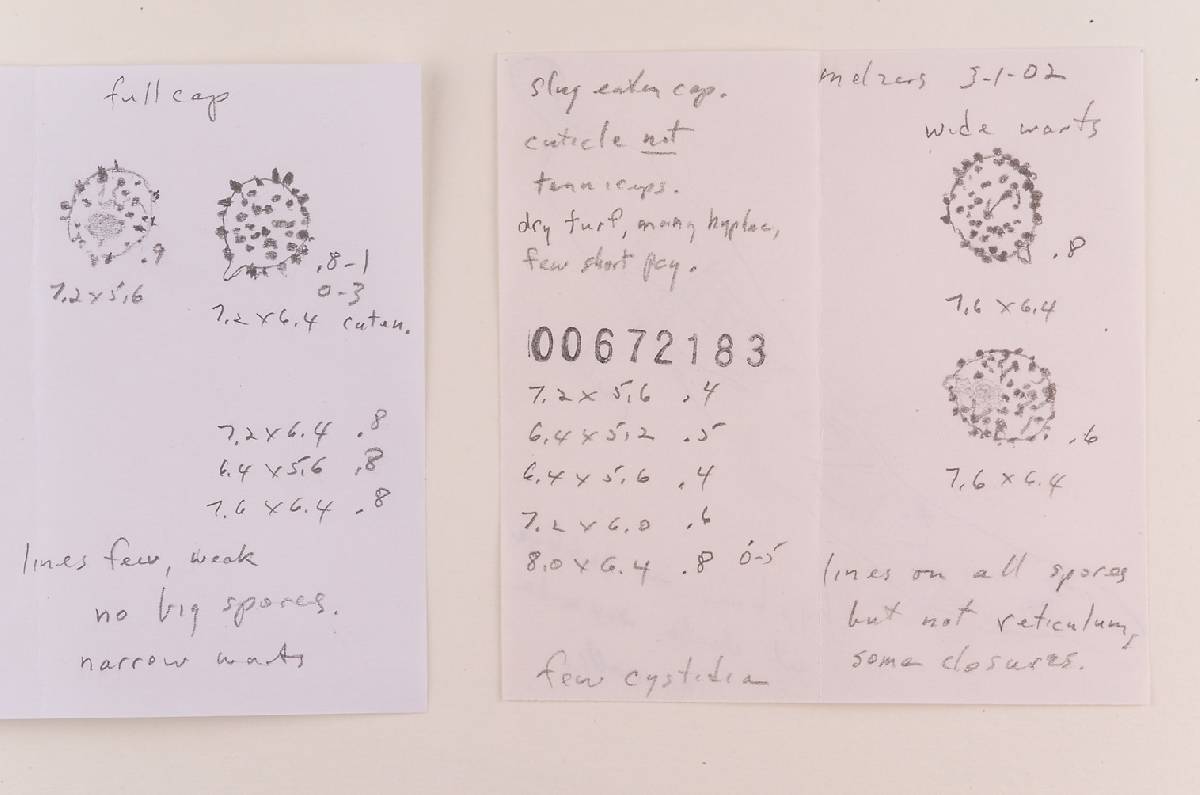 full cap
.9
7.2 x 5.6
.8-1
0-3
7.2 x 6.4 caten.
7.2 x 6.4 .8
6.4 x 5.6 .8
7.6 x 6.4 .8
lines few, weak
no big spores.
narrow warts
slug eaten cap.
cuticle not
dry turf, many hyphae,
few short
00672183
7.2 x 5.6 .4
6.4 x 5.2 .5
6.4 x 5.6 .4
7.2 x 6.0 .6
8.0 x 6.4 .8 0-5
few cystidia
melzers 3-1-02
wide warts
.8
7.6 x 6.4
.6
7.6 x 6.4
lines on all spores
but not reticulum,
some closures.